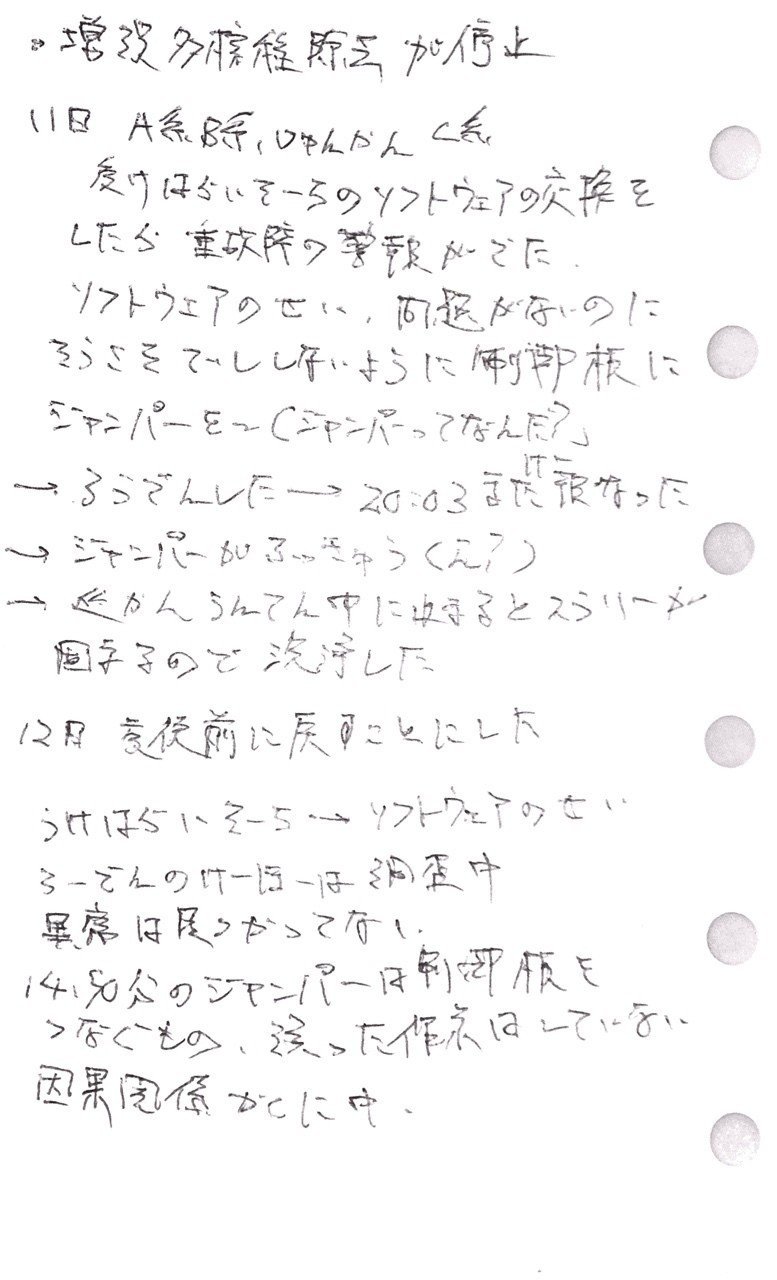 ・増設多核種除去が停止
11日 A系、B系、じゅんかん C系
受けはらいそーちのソフトウェアの交換を
したら 重故障の警報がでた.
ソフトウェアのせい、問題がないのに
そうさそてーししないように制御板に
ジャンパーをつ(ジャンパーってなんだ?」
→ ろうでんした → 20:03 また 報なった
けー
→ ジャンパーがふっきゅう(え?)
→ かんうんてん中に止まるとスラリーが
固まるので 洗浄した
12日 変後前に戻すことにした
うけはらいそーち → ソフトウェアのせい
ろーでんのけーほーは 調査中
異常は見つかってない
14:50分のジャンパーは制御板を
つなぐもの、誤った作業はしていない
因果関係かくに中.